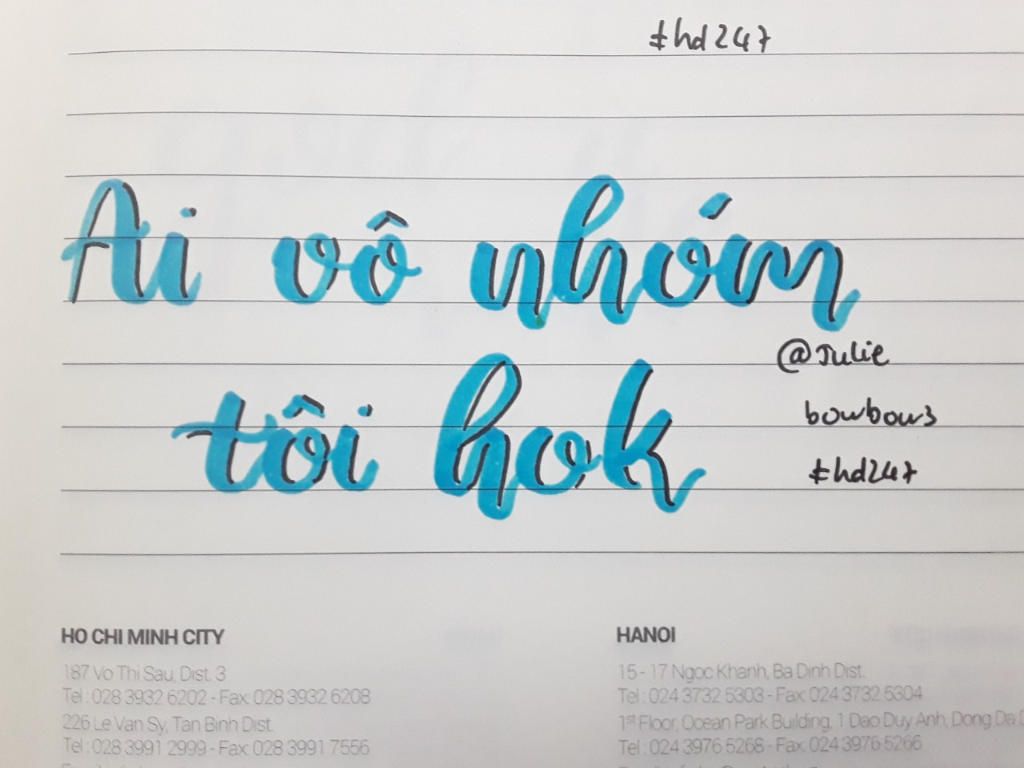 #hd247
Ai vô nhóm
tôi hok
@Julie
bowbow3
#hd247
HO CHI MINH CITY
187 Vo Thi Sau, Dist. 3
Tel : 028 3932 6202 - Fax: 028 3932 6208
226 Le Van Sy, Tan Binh Dist.
Tel : 028 3991 2999 - Fax: 028 3991 7556
HANOI
15 - 17 Ngoc Khanh, Ba Dinh Dist.
Tel : 024 3732 5303 - Fax: 024 3732 5304
1st Floor, Ocean Park Building, 1 Dao Duy Anh, Dong Da D
Tel : 024 3976 5268 - Fax: 024 3976 5266